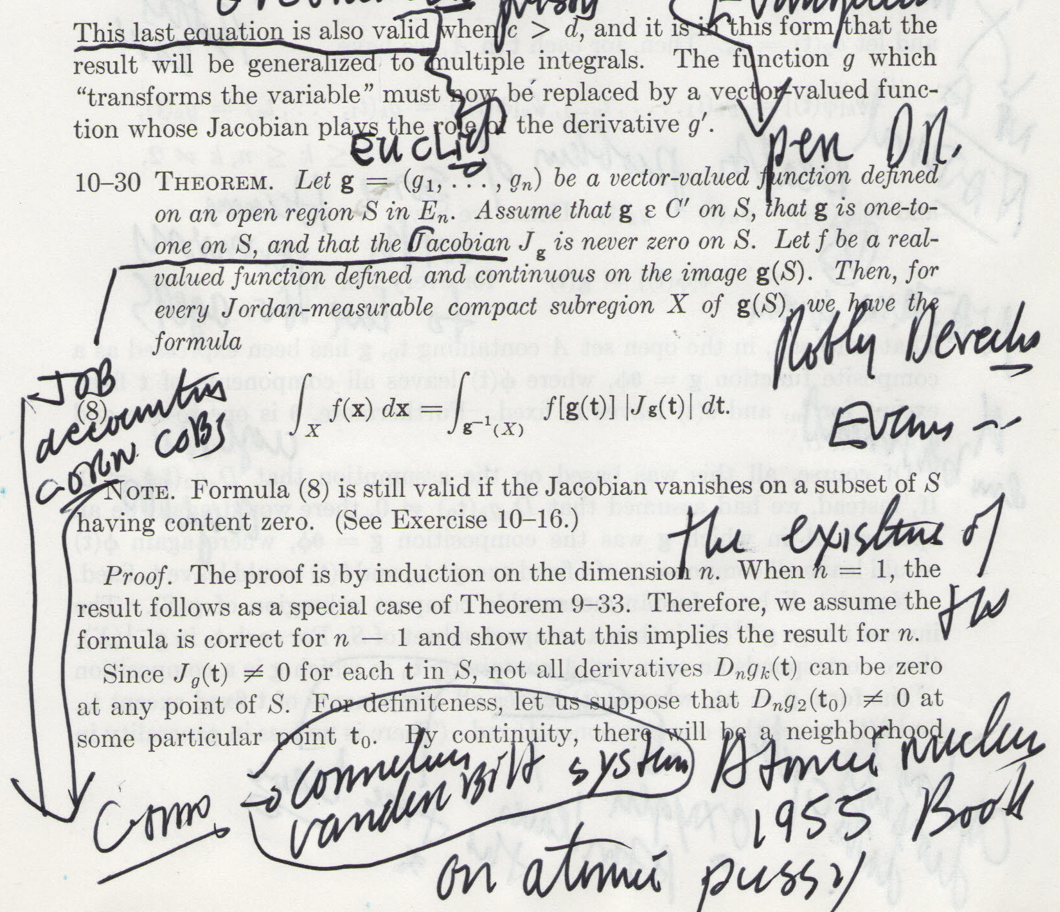 This last equation is also valid when c > d, and it is in this form that the
result will be generalized to multiple integrals. The function g which
“transforms the variable” must now be replaced by a vector-valued func-
tion whose Jacobian plays the role of the derivative g′.
EUCLID
pen DR.
10–30 THEOREM. Let g = (g₁, . . . , gₙ) be a vector-valued function defined
on an open region S in Eₙ. Assume that g ε C′ on S, that g is one-to-
one on S, and that the Jacobian J_g is never zero on S. Let f be a real-
valued function defined and continuous on the image g(S). Then, for
every Jordan-measurable compact subregion X of g(S), we have the
formula
JOB
(8) ∫_X f(x) dx = ∫_{g⁻¹(X)} f[g(t)] |J_g(t)| dt.
Evans
corn cobs
NOTE. Formula (8) is still valid if the Jacobian vanishes on a subset of S
having content zero. (See Exercise 10–16.)
the existence of
Proof. The proof is by induction on the dimension n. When n = 1, the
result follows as a special case of Theorem 9–33. Therefore, we assume the
formula is correct for n − 1 and show that this implies the result for n.
Since J_g(t) ≠ 0 for each t in S, not all derivatives Dₙgₖ(t) can be zero
at any point of S. For definiteness, let us suppose that Dₙg₂(t₀) ≠ 0 at
some particular point t₀. By continuity, there will be a neighborhood
Cornelius system Atomic nucleus
vanderBilt 1955 Book
on atomic pussy